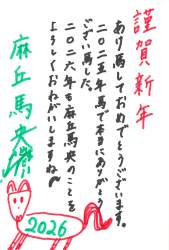 謹賀新年
あけ馬しておめでとうございます。
二〇二五年馬で本当にありがとう
ござい馬した。
二〇二六年も麻丘馬央のことを
よろしくおねがいしますね
麻丘馬央
2026